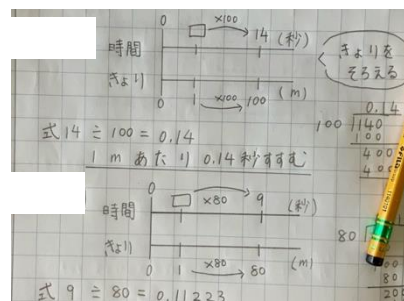 0 ×100 14 (秒)
時間
きょり
0 1 ×100 100 (m)
きょりを
そろえる
式 14 ÷ 100 = 0.14
1m あたり 0.14 秒すすむ
0.14
100 140
100
400
400
0 ×80 9 (秒)
時間
きょり
0 1 ×80 80 (m)
80
80
200
式 9 ÷ 80 = 0.11223